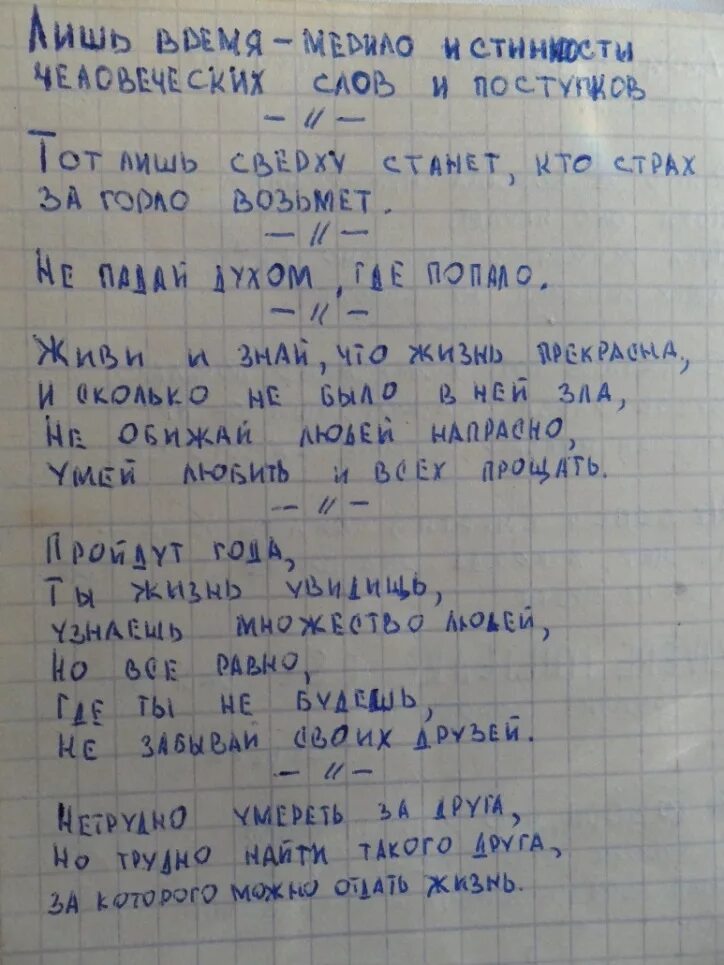 Лишь время – мерило истинности
человеческих слов и поступков
– // –
Тот лишь сверху станет, кто страх
за горло возьмет.
– // –
Не падай духом, где попало.
– // –
Живи и знай, что жизнь прекрасна,
и сколько не было в ней зла,
не обижай людей напрасно,
умей любить и всех прощать.
– // –
Пройдут года,
Ты жизнь увидищь,
узнаешь множество людей,
но все равно,
где ты не будешь,
не забывай своих друзей.
– // –
Нетрудно умереть за друга,
но трудно найти такого друга,
за которого можно отдать жизнь.